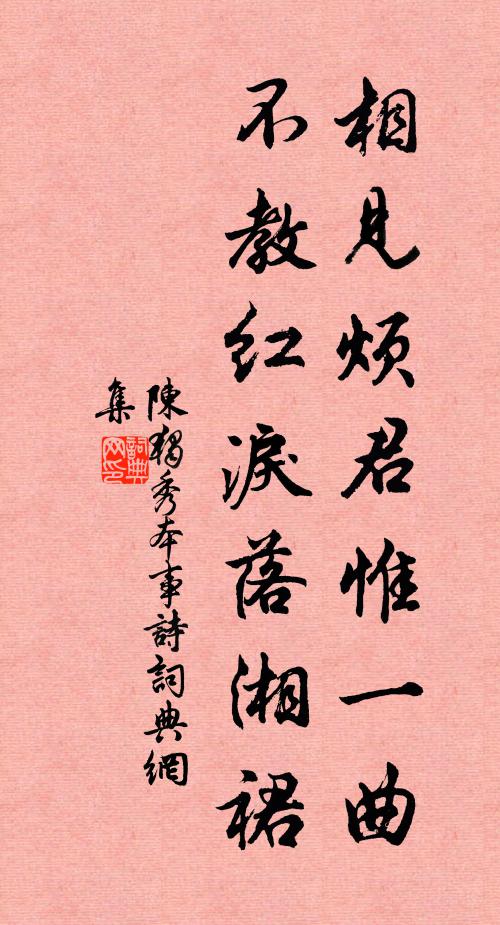 相見煩君惟一曲
不教紅淚落湘裙
陳獨秀本事詩詞典網
集
詞典網印